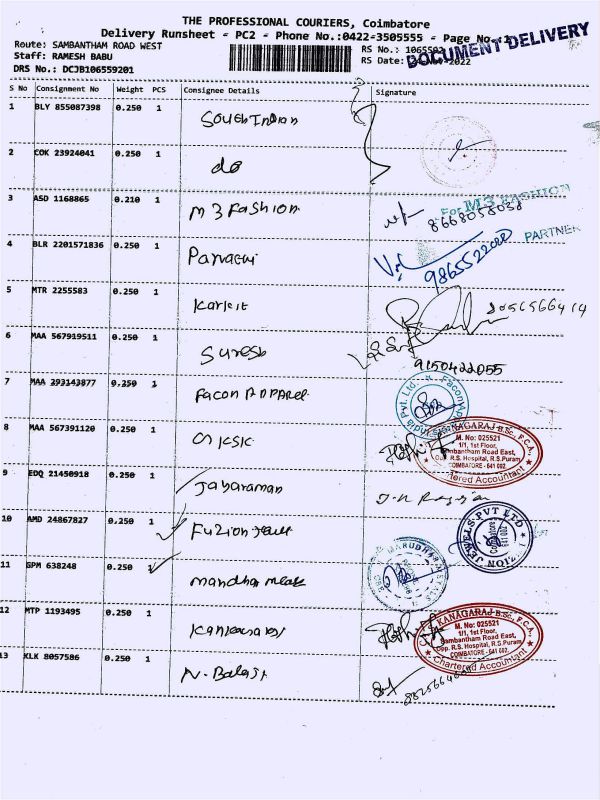 THE PROFESSIONAL COURIERS, Coimbatore
Delivery Runsheet - PC2 - Phone No.:0422-3505555 - Page No.:1
DOCUMENT DELIVERY
Route: SAMBANTHAM ROAD WEST
Staff: RAMESH BABU
DRS No.: DCJB106559201
RS No.:
RS Date: 2022
S No Consignment No Weight PCS Consignee Details Signature
1 BLY 855087398 0.250 1 South Indian
2 COK 23924041 0.250 1 do
3 ASD 1168865 0.210 1 M3 Fashion
For M3 FASHION
8668058038
PARTNER
4 BLR 2201571836 0.250 1
9865522020
5 MTR 2255583 0.250 1
6 MAA 567919511 0.250 1 Suresh
9150422055
7 MAA 293143877 0.250 1 Facon Apparel
8 MAA 567391120 0.250 1
KANAGARAJ B.Sc., F.C.A.,
M. No: 025521
1/1, 1st Floor,
Sambantham Road East,
Opp. R.S. Hospital, R.S.Puram
COIMBATORE - 641 002.
Chartered Accountant
9 EDQ 21450918 0.250 1 Jayaraman
10 AMD 24867827 0.250
JEWELS PVT LTD
11 GPM 638248 0.250
12 MTP 1193495 0.250 1
KANAGARAJ B.Sc., F.C.A.
M. No: 025521
1/1, 1st Floor,
Sambantham Road East,
Opp. R.S. Hospital, R.S.Puram
COIMBATORE - 641 002.
Chartered Accountant
13 KLK 8057586 0.250 1 N. Balaji